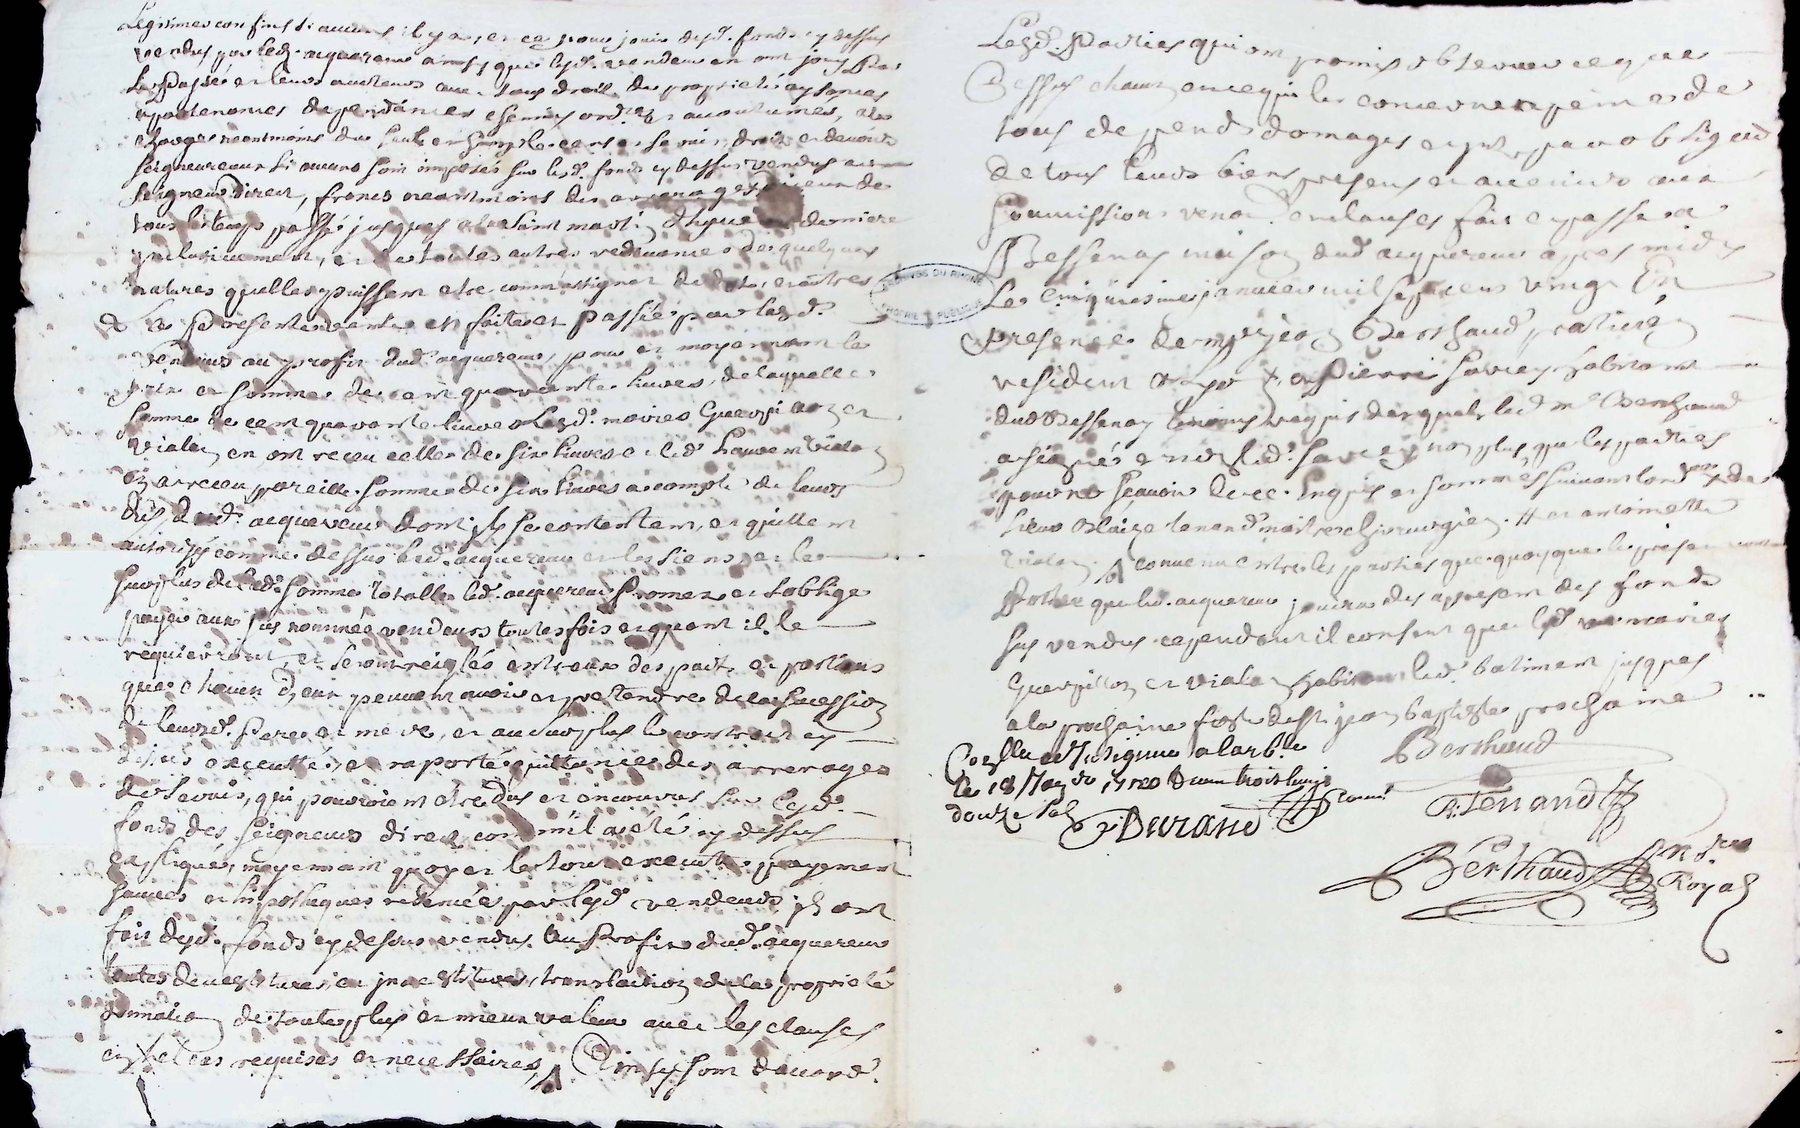 Legitimes confins si aucuns il y a, et ce pour jouir desd. fonds cy dessus
vendus par led. acquereur ainsy que lesd. vendeurs en ont jouy
le passé et leurs autheurs avec tous droits de proprieté aysances
apartenances dependances chemins ord.res et accoutumés, a la
charge neantmoins du seul et simple cens et servis, droits et devoirs
seigneuriaux si aucuns sont imposés sur lesd. fonds cy dessus vendus au
seigneur direct, francs neantmoins des arrerages de
tous le temps passé jusques a la saint martin d'hyver derniere
inclusivement, et de toutes autres redevances de quelques
natures quelles puissent etre comme aussy et autres
& la presente vente est faite et passée par lesd.
vendeurs au profit dud. acquereur, pour et moyennant le
prix et somme de cent quarante livres, de laquelle
somme de cent quarante livres lesd. mariés Guerpillon et
Vialon en ont receu celle de six livres et led. Vialon
en a receu pareille somme de six livres a compte de leurs
dus, dud. acquereur dont ils se contentent, et quittent
autorisés comme dessus led. acquereur et les siens et le
surplus de lad. somme totalle led. acquereur promet et s'oblige
payer aux sus nommés vendeurs toutesfois et quant il le
requierront, et seront reiglés entreux des parts et portions
que chacun d'eux peuvent avoir et pretendre de la sucession
de leursd. pere et mere, et au surplus le contract cy
dessus executté, et raporté quittances des arrerages
de servis, qui pourroient etre dus et encourus sur lesd.
fonds des seigneurs direct comm'il a été cy dessus
expliqué, moyennant quoy et le tout executté payement
somme et hipotheques reservée par lesd. vendeurs ils ont
fait desd. fonds cy dessus vendus au profit dud. acquereur
toutes devestitures, et investitures, translation de la proprieté
donnation de toute plus et mieux value avec les clauses
requises et necessaires, Ainsy sont d'accord.
Lesd. parties qui ont promis observer ce que
dessus chacun en ce qui les concerne a peine de
tous depends domages et int. par obligation
de tous leurs biens presens et avenirs avec
soumissions renon. et clauses fait et passé a
Bessenay maison dud. acquereur apres midy
le cinquiesme janvier mil sept cens vingt En
presence de m.re jean Berthaud, praticien
resident et Pierre Savey habitant
dud. Bessenay temoins requis desquels led. m.e Berthaud
a signé et non led. Savey non plus que les parties
pour ne sçavoir de ce enquis et sommés suivant l'ord. de
sieur Blaize Tenand maitre chirurgien # et antoinette
Vialon. convenu entre les parties que quoyque le present
porte que led. acquereur jouira des apresent des fonds
sus vendus cependant il consent que lesd. mariés
Guerpillon et Vialon habitent led. batiment jusques
a la prochaine feste de St jean baptiste prochaine
Con.llé et Insigniné a larb.le
le 18 1720 R. trois livres
douze sols
Durand
Comm.
Berthaud
B. Tenand
Berthaud No.re
Royal
ARCHIVES DU RHONE
PROPRIÉTÉ PUBLIQUE